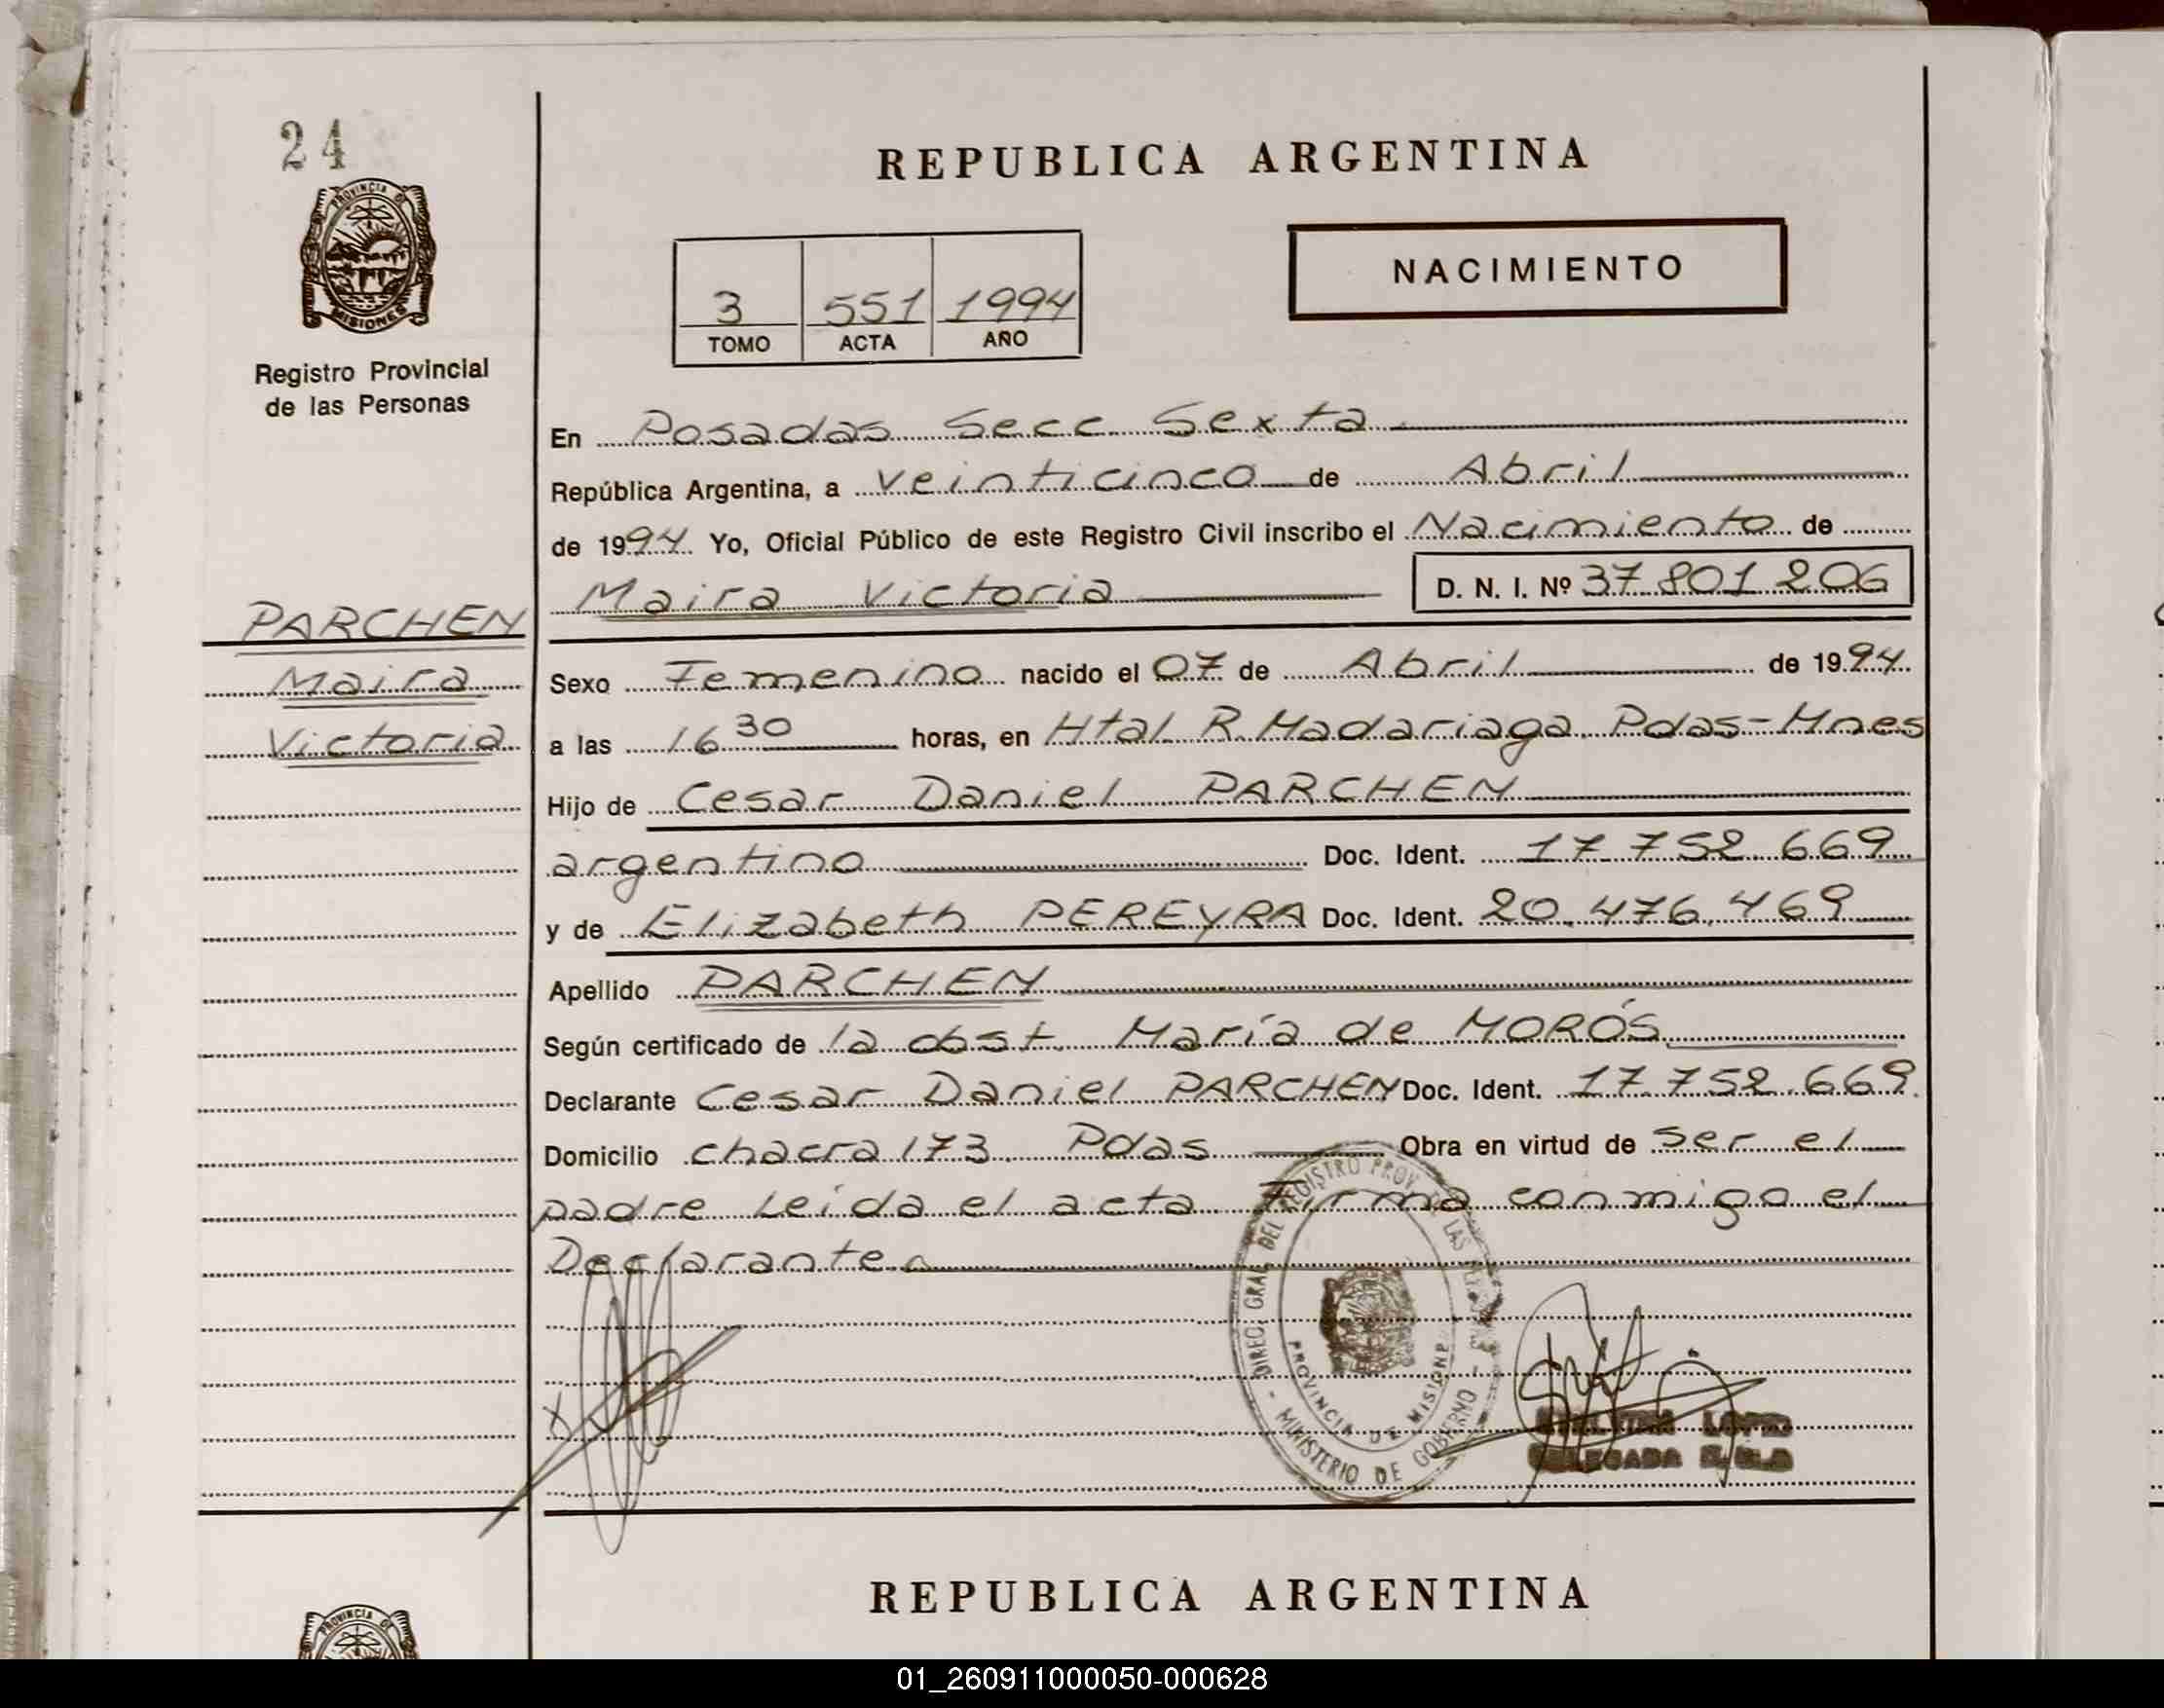 24
PROVINCIA DE
MISIONES
Registro Provincial
de las Personas
PARCHEN
Maira
Victoria
REPUBLICA ARGENTINA
3 551 1994
TOMO ACTA AÑO
NACIMIENTO
En Posadas Secc Sexta
República Argentina, a veinticinco de Abril
de 1994 Yo, Oficial Público de este Registro Civil inscribo el Nacimiento de
Maira Victoria D. N. I. Nº 37.801.206
Sexo Femenino nacido el 07 de Abril de 1994
a las 16 30 horas, en Htal R. Madariaga. Pdas-Mnes
Hijo de Cesar Daniel PARCHEN
argentino Doc. Ident. 17.752.669
y de Elizabeth PEREYRA Doc. Ident. 20.476.469
Apellido PARCHEN
Según certificado de la obst. María de MORÓS
Declarante Cesar Daniel PARCHEN Doc. Ident. 17.752.669.
Domicilio chacra 173. Pdas Obra en virtud de ser el
padre Leída el acta Firma conmigo el
Declarante
X
DIREC. GRAL. DEL REGISTRO PROV. DE LAS
PROVINCIA DE MISIONES
- MINISTERIO DE GOBIERNO -
REPUBLICA ARGENTINA
PROVINCIA DE
01_260911000050-000628